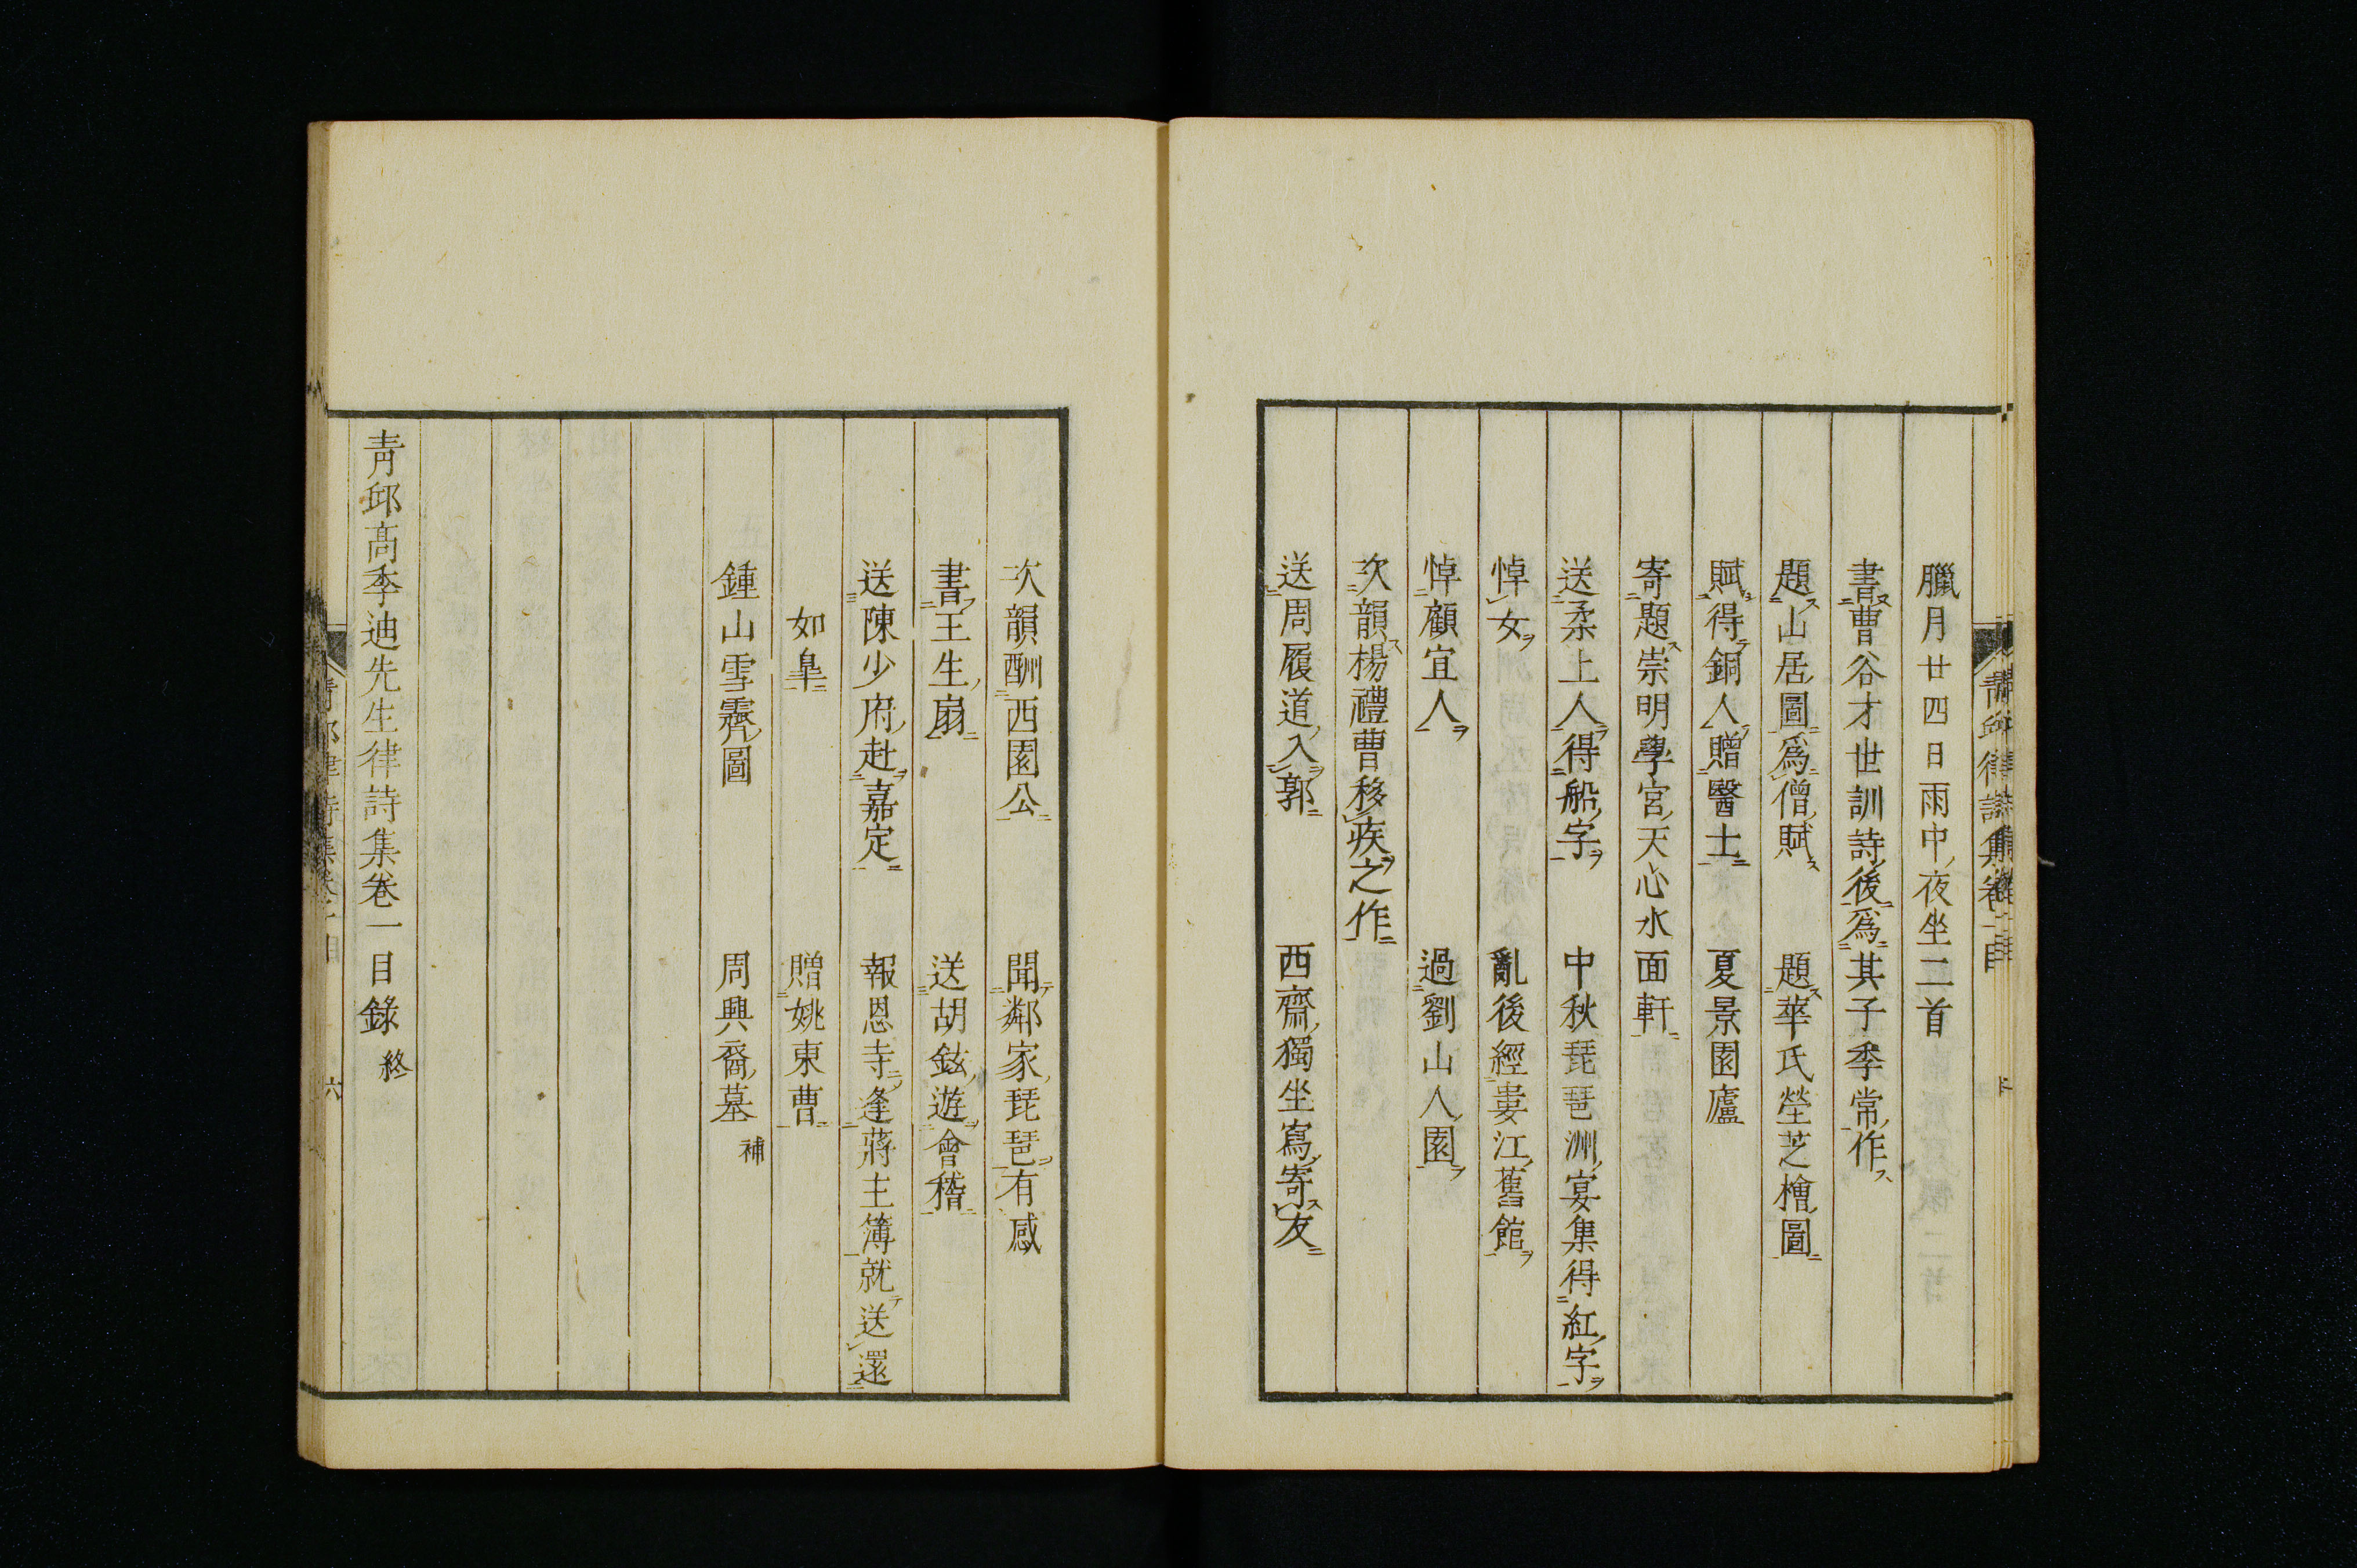 臘月廿四日雨中夜坐二首
書曹谷才世訓詩後爲其子季常作
題山居圖爲僧賦　題華氏塋芝檜圖
賦得銅人贈醫士　夏景園廬
寄題崇明學宮天心水面軒
送柔上人得船字　中秋琵琶洲宴集得紅字
悼女　亂後經婁江舊館
悼顧宜人　過劉山人園
次韻楊禮曹移疾之作
送周履道入郭　西齋獨坐寫寄友
次韻酬西園公　聞鄰家琵琶有感
書王生扇　送胡鉉遊會稽
送陳少府赴嘉定　報恩寺逢蔣主簿就送還
如皐　贈姚東曹
鍾山雪霽圖　周興裔墓 補
青邱高季迪先生律詩集卷一目錄 終
六